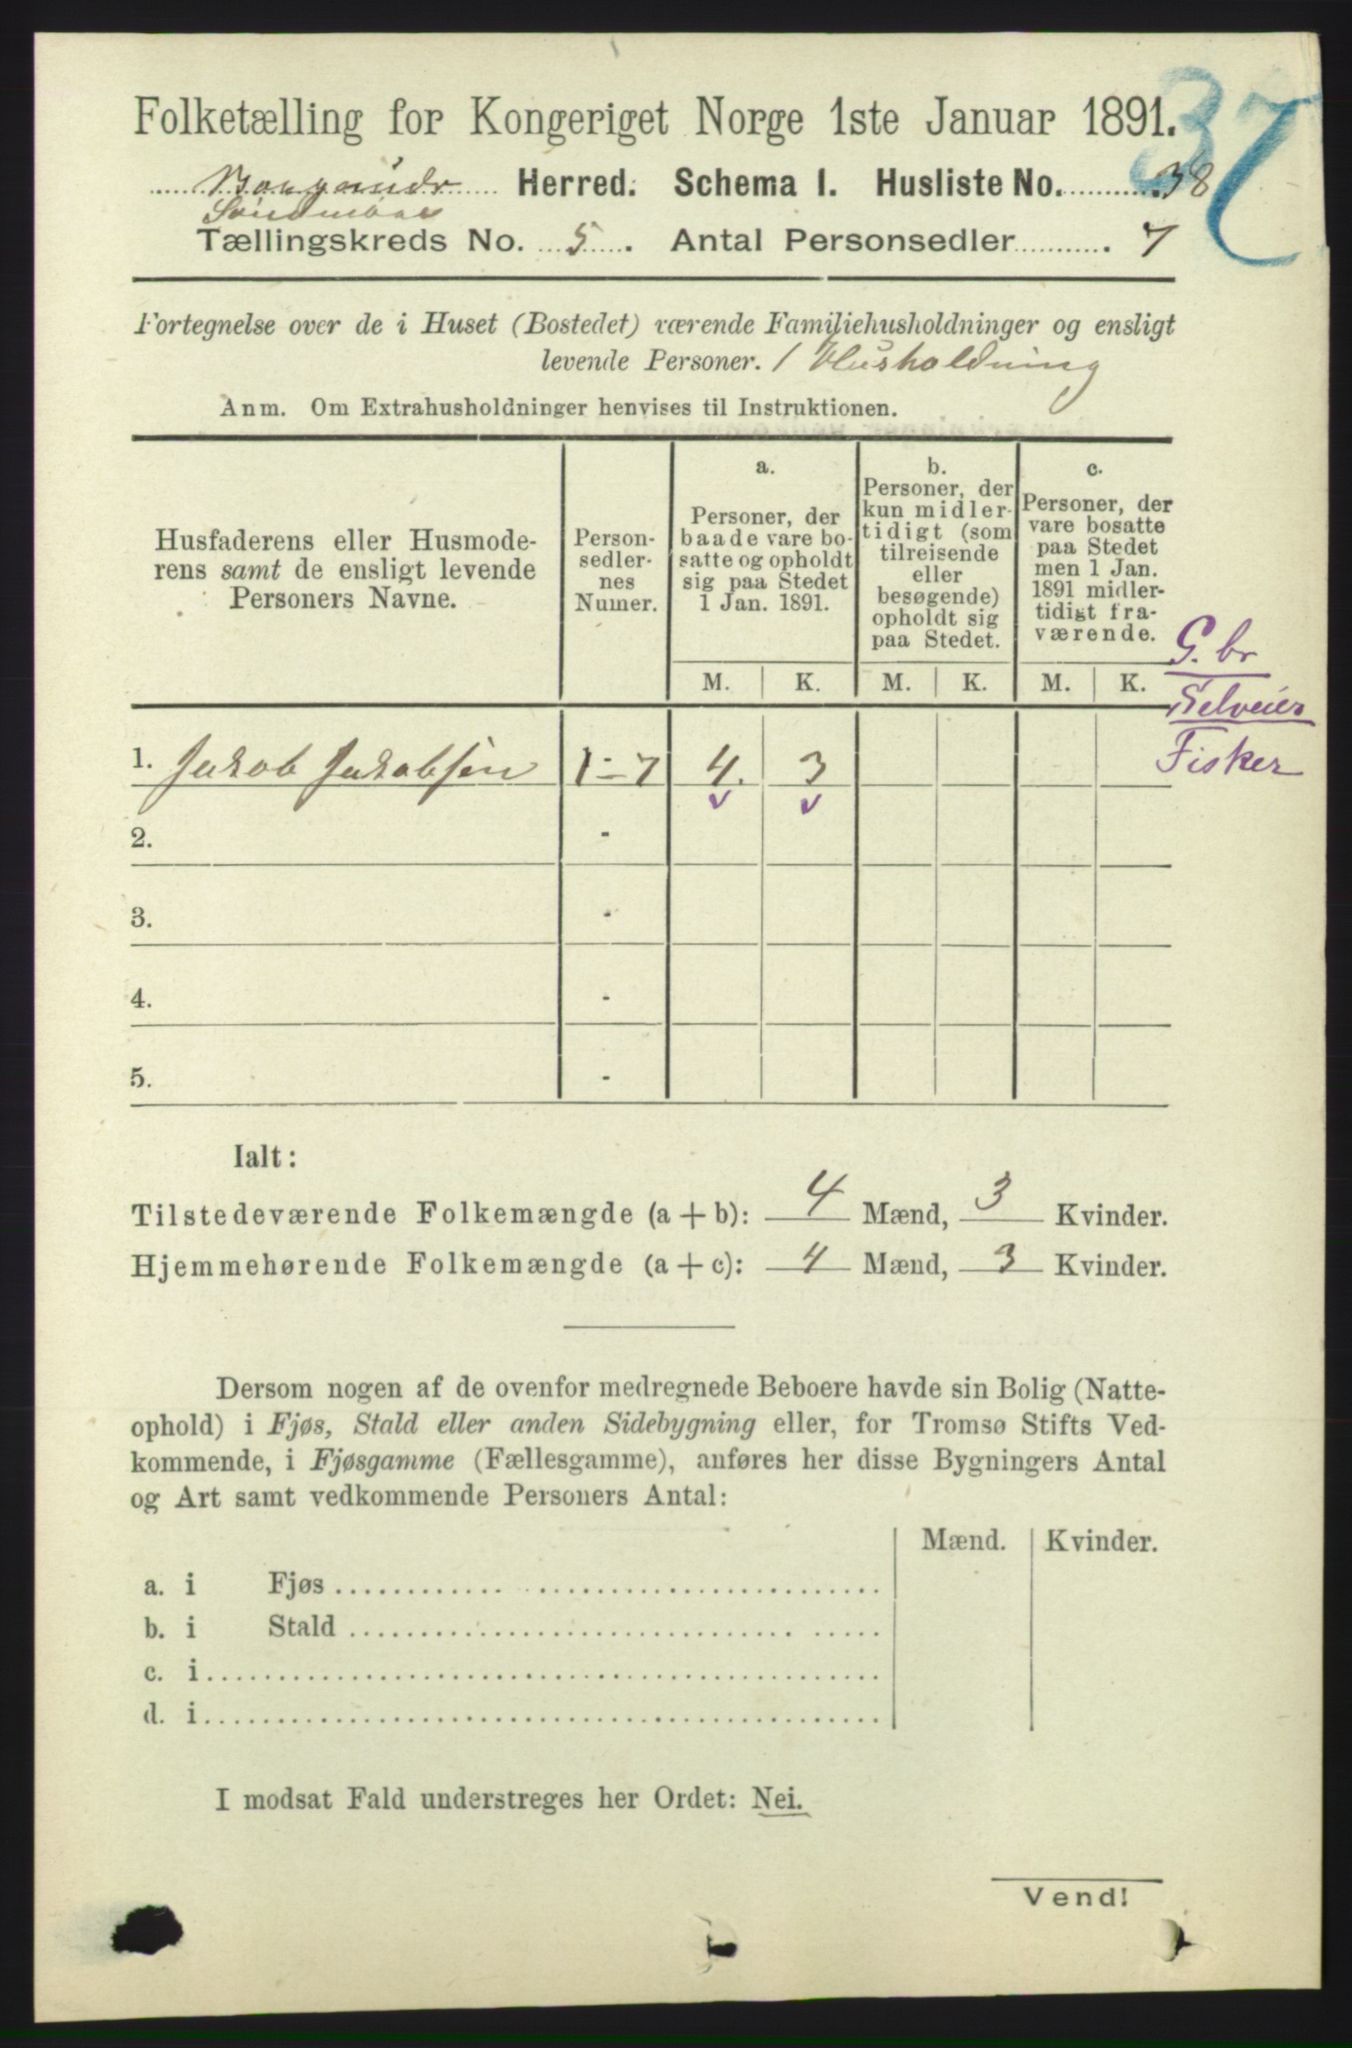 37
Folketælling for Kongeriget Norge 1ste Januar 1891.
Borgunds Herred. Schema 1. Husliste No. 38
Søndmøre
Tællingskreds No. 5. Antal Personsedler 7
Fortegnelse over de i Huset (Bostedet) værende Familiehusholdninger og ensligt
levende Personer. 1 Husholdning
Anm. Om Extrahusholdninger henvises til Instruktionen.
Husfaderens eller Husmode-
rens samt de ensligt levende
Personers Navne.
Person-
sedler-
nes
Numer.
a.
Personer, der
baade vare bo-
satte og opholdt
sig paa Stedet
1 Jan. 1891.
b.
Personer, der
kun midler-
tidigt (som
tilreisende
eller
besøgende)
opholdt sig
paa Stedet.
c.
Personer, der
vare bosatte
paa Stedet
men 1 Jan.
1891 midler-
tidigt fra-
værende.
M. K. M. K. M. K.
G. br
Selveier
Fisker
1. Jakob Jakobsen 1 - 7 4. 3
v v
2. -
3. -
4. -
5. -
Ialt:
Tilstedeværende Folkemængde (a + b): 4 Mænd, 3 Kvinder.
Hjemmehørende Folkemængde (a + c): 4 Mænd, 3 Kvinder.
Dersom nogen af de ovenfor medregnede Beboere havde sin Bolig (Natte-
ophold) i Fjøs, Stald eller anden Sidebygning eller, for Tromsø Stifts Ved-
kommende, i Fjøsgamme (Fællesgamme), anføres her disse Bygningers Antal
og Art samt vedkommende Personers Antal:
Mænd. Kvinder.
a. i Fjøs
b. i Stald
c. i
d. i
I modsat Fald understreges her Ordet: Nei.
Vend!